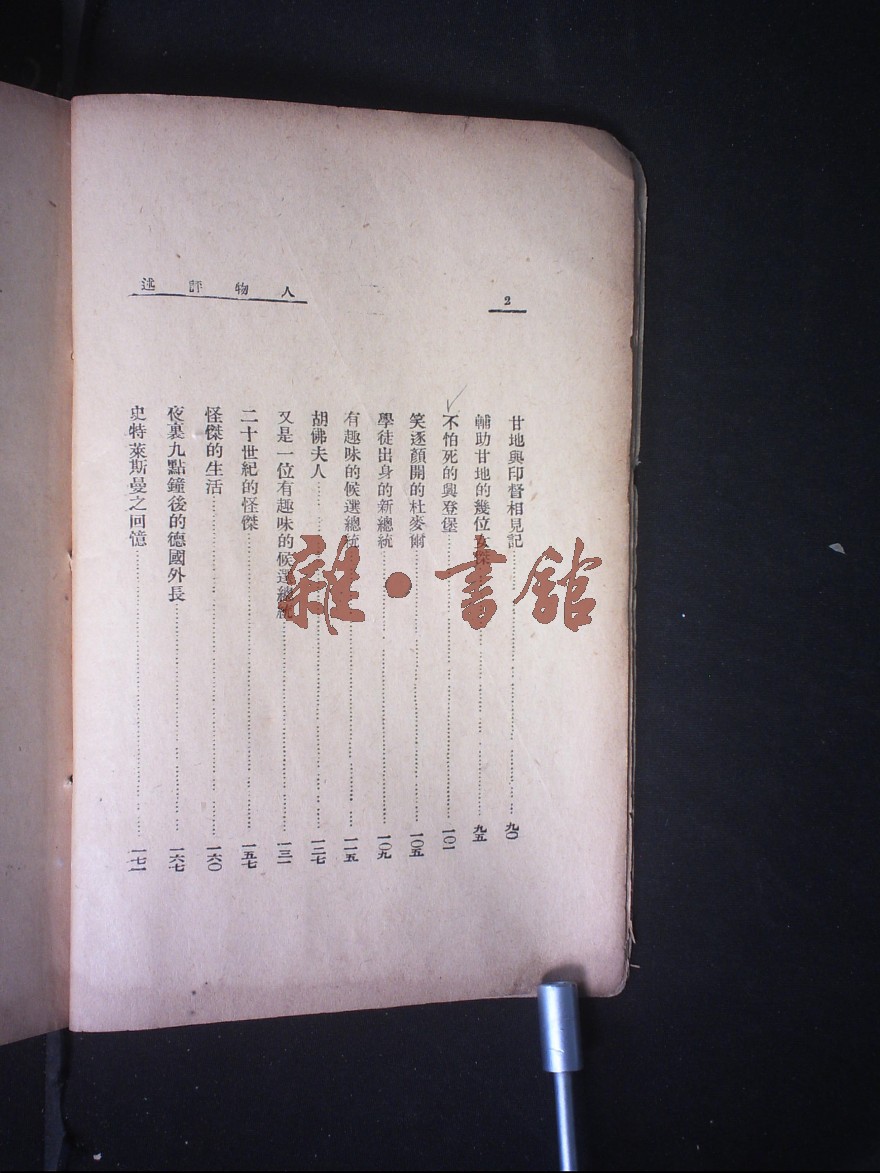 人物評述
2
甘地與印督相見記 九〇
輔助甘地的幾位女傑 九五
不怕死的興登堡 一〇一
笑逐顏開的杜麥爾 一〇五
學徒出身的新總統 一〇九
有趣味的候選總統 一一五
胡佛夫人 一二七
又是一位有趣味的候選總統 一三一
二十世紀的怪傑 一五七
怪傑的生活 一六〇
夜裏九點鐘後的德國外長 一六七
史特萊斯曼之回憶 一七一
雜·書館